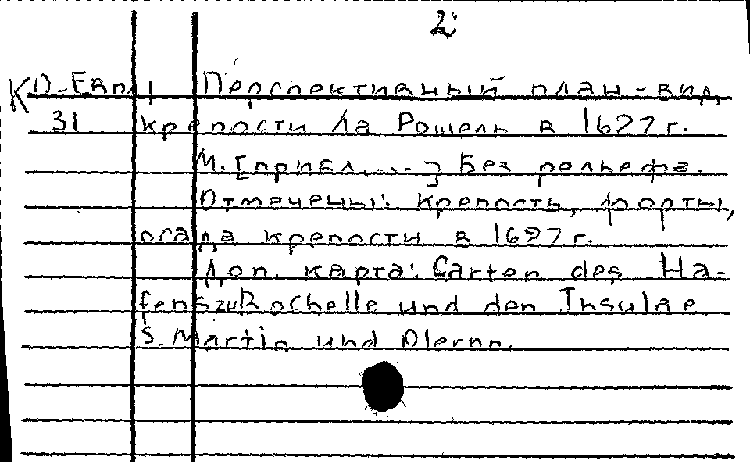 2.
К D-Евп, Перспективный план-вид
31 крепости Ла Рошель в 1627 г.
М. [прибл. ....] Без рельефа.
Отмечены: крепость, форты,
осада крепости в 1627 г.
Доп. карта: Carten des Ha-
fens zu Rochelle und den Insulae
S. Martin und Oleron.